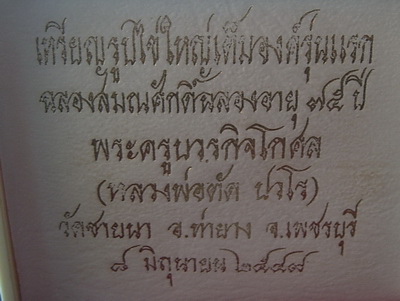 เหรียญรูปไข่ใหญ่เต็มองค์รุ่นแรก
ฉลองสมณศักดิ์ฉลองอายุ ๗๕ ปี
พระครูบวรกิจโกศล
(หลวงพ่อตัด ปวโร)
วัดชายนา อ.ท่ายาง จ.เพชรบุรี
๘ มิถุนายน ๒๕๔๗